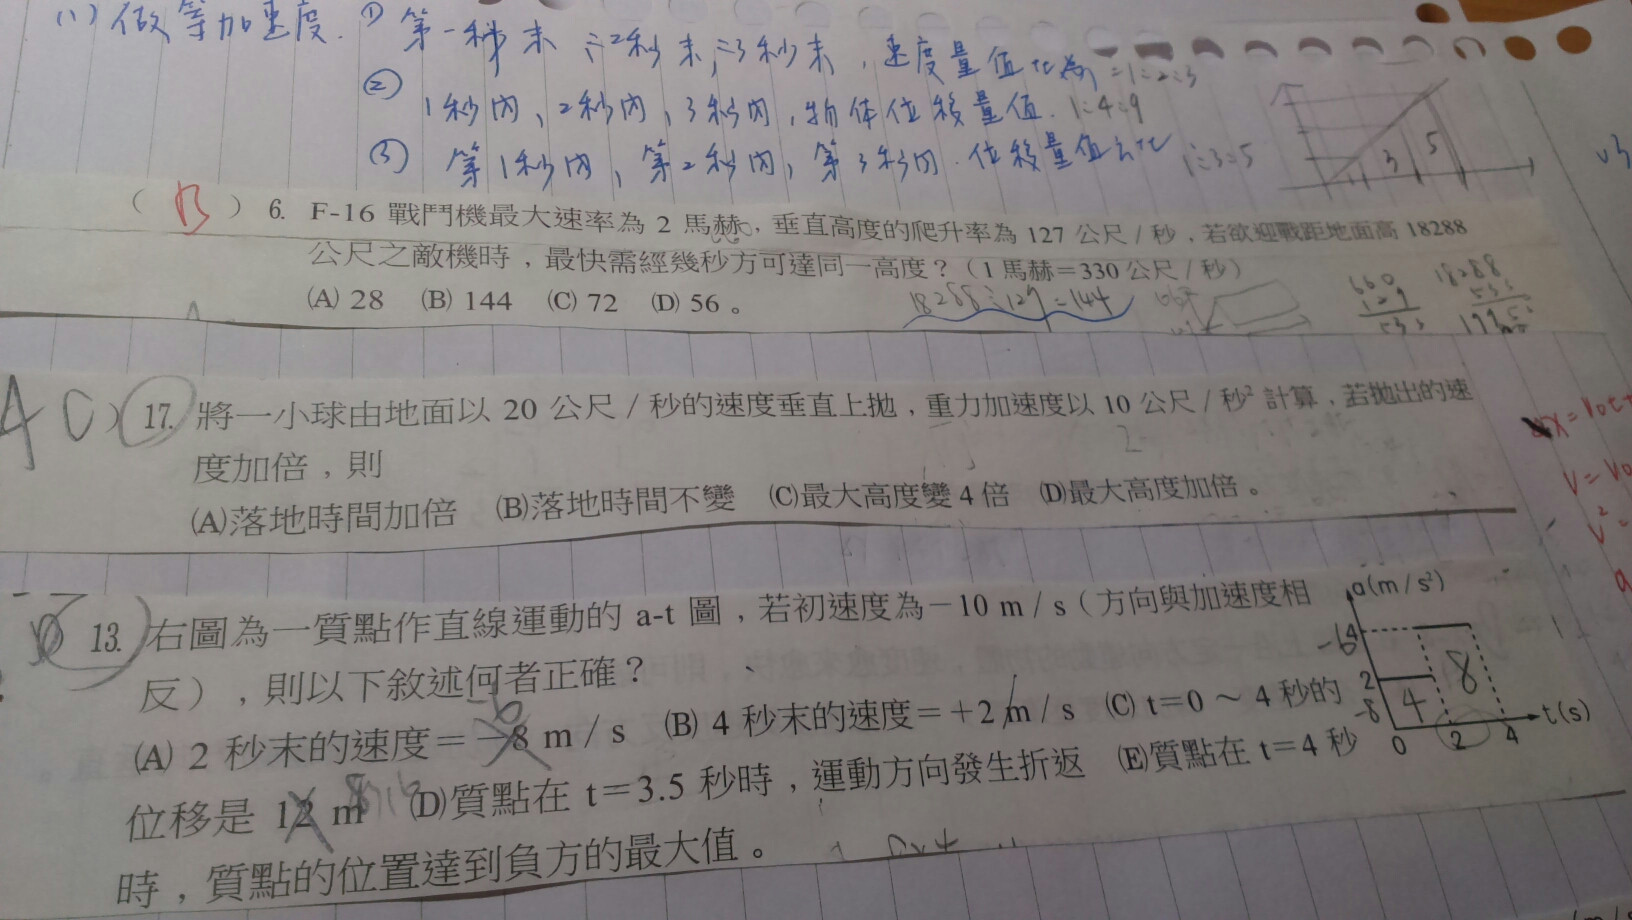 (1) 做等加速度. ① 第一秒末 2秒末 3秒末, 速度量值比為 =1:2:3
② 1秒內、2秒內、3秒內, 物体位移量值. 1:4:9
③ 第1秒內, 第2秒內, 第3秒內. 位移量值之比 1:3:5
3 5
( B ) 6. F-16 戰鬥機最大速率為 2 馬赫,垂直高度的爬升率為 127 公尺/秒,若欲迎戰距地面高 18288
公尺之敵機時,最快需經幾秒方可達同一高度?(1 馬赫=330 公尺/秒)
(A) 28 (B) 144 (C) 72 (D) 56 。
18288÷127=144
AC ) 17. 將一小球由地面以 20 公尺/秒的速度垂直上拋,重力加速度以 10 公尺/秒² 計算,若拋出的速
度加倍,則
(A)落地時間加倍 (B)落地時間不變 (C)最大高度變 4 倍 (D)最大高度加倍。
) 13. 右圖為一質點作直線運動的 a-t 圖,若初速度為-10 m/s(方向與加速度相
反),則以下敘述何者正確?
(A) 2 秒末的速度=-8 m/s (B) 4 秒末的速度=+2 m/s (C) t=0 ~ 4 秒的
-6
位移是 12 m (D)質點在 t=3.5 秒時,運動方向發生折返 (E)質點在 t=4 秒
時,質點的位置達到負方的最大值。
a(m/s²)
4
2
4 8
0 2 4 t(s)